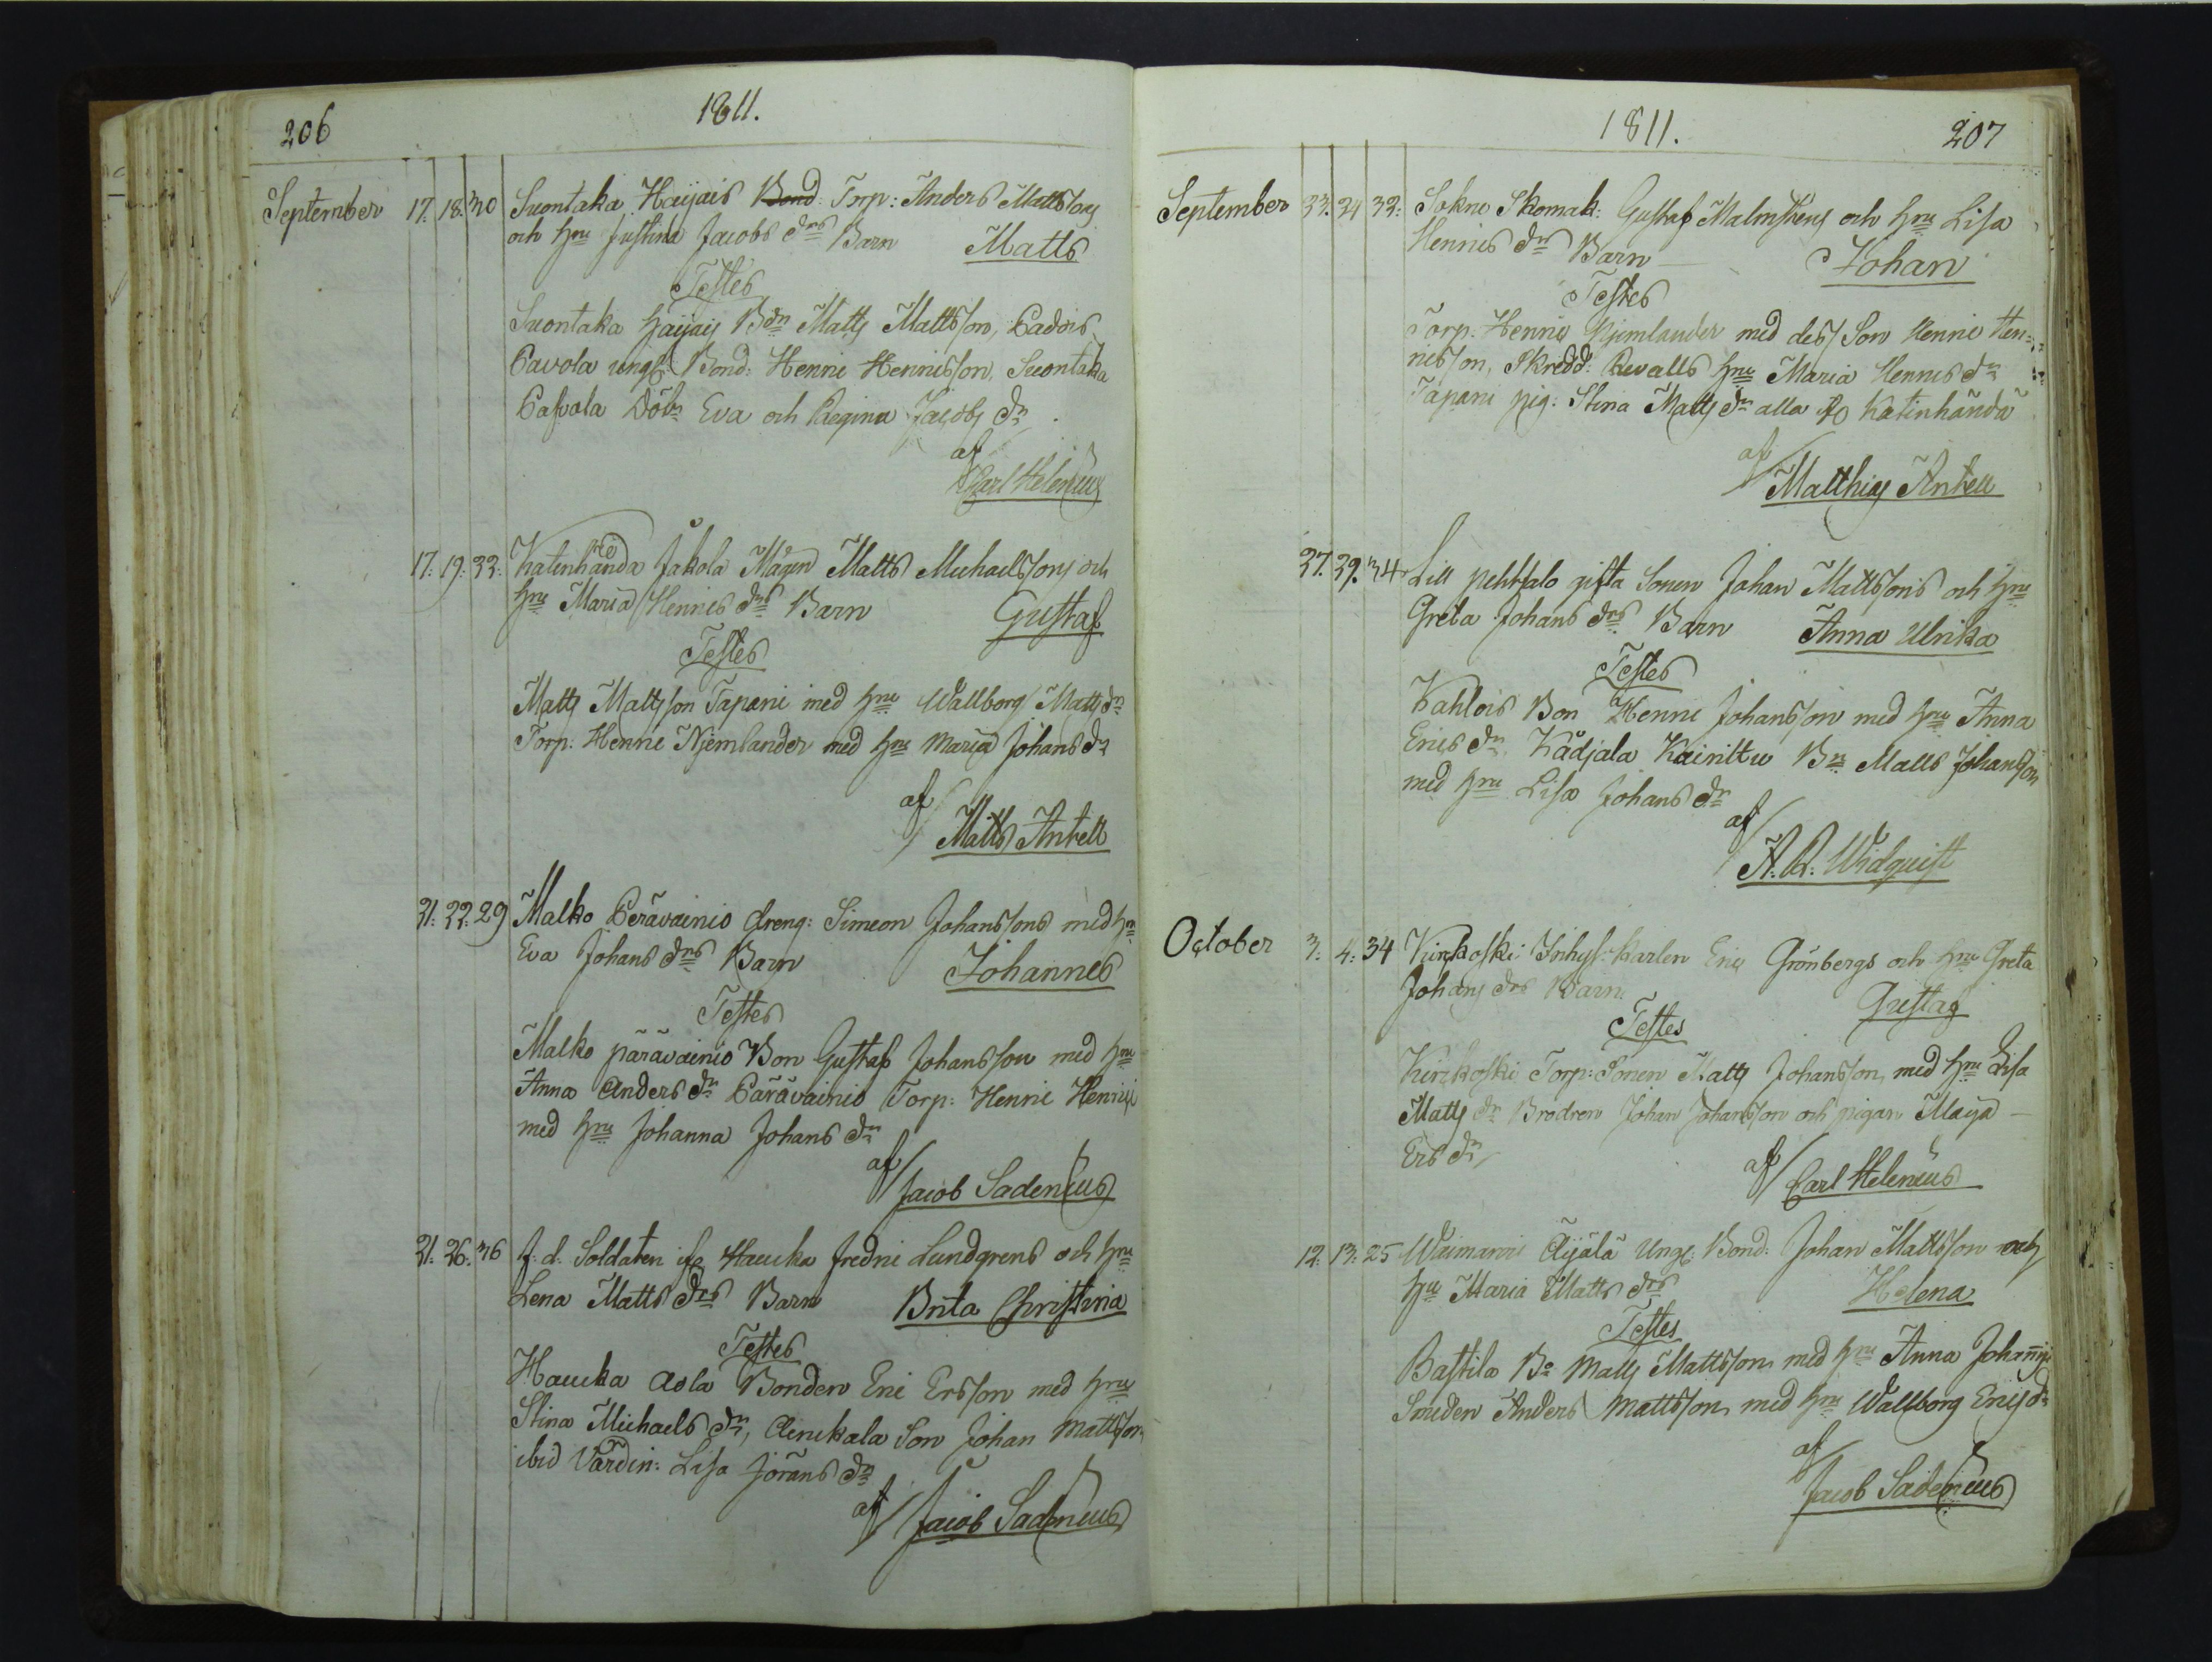 206
1811.
September 17. 18. 30 Suontaka Haijais Bond: Torp: Anders Mattsons
och Hru Justina Jacobs drs Barn Matts
Testes
Suontaka Haijais Bdn Matts Mattsson, Cadois
Pavola ungk: Bond: Henric Henricsson, Suontaka
Pafvola Döbr Eva och Regina Jacobs dr
af
Carl Helenius
17. 19. 33. Katinhändä Jakola Mågen Matts Michaelssons och
Hru Maria Henrics drs Barn Gustaf
Testes
Matts Mattsson Tapani med Hru Wallborg Matts dr
Torp: Henric Njemlander med Hru Maria Johans dr
af
Matts Antell
21. 22. 29 Malko Perävainio dreng: Simeon Johanssons med Hru
Eva Johans drs Barn Johannes
Testes
Malko pärävainio Bon Gustaf Johansson med Hru
Anna Anders dr Pärävainio Torp: Henric Henrics
med Hru Johanna Johans dr
af
Jacob Sadenius
21. 26. 36 f. d. Soldaten ifr Hauka Fredric Lundgrens och Hru
Lena Matts drs Barn Brita Christina
Testes
Hauka Aola Bonden Eric Ersson med Hru
Stina Michaels dr, Anukala Son Johan Mattsson
ibid Värdin: Lisa Jörans dr
af
Jacob Sadenius
1811.
207
September 23. 24 32: Sokno Skomak: Gustaf Malmstens och Hru Lisa
Henrics dr Barn Johan
Testes
Torp: Henric Njemlander med dess Son Henric Hen=
ricsson, Skredd: Revalls Hru Maria Henrics dr
Tapani pig: Stina Matts dr alla fr Katinhändä
af
Matthias Antell
27. 29. 34 Lill pehtsalo gifta Sonen Johan Mattssons och Hru
Greta Johans drs Barn Anna Ulrika
Testes
Kahlois Bon Henric Johansson med Hru Anna
Erics dr Kådjala Kairittu Bn Matts Johansson
med Hru Lisa Johans dr
af
A. R. Widquist
October 3. 4. 34 Kirckoski Inhys: Karlen Erics Grönbergs och Hru Greta
Johans drs Barn
Gustaf
Testes
Kirckoski Torp: Sonen Matts Johansson, med Hru Lisa
Matts dr Brodren Johan Johansson och pigan Maija
Ers dr
af
Carl Helenius
12. 13. 25 Waimaris Äijälä Ungk: Bond: Johan Mattsson och
Hru Maria Matts drs Helena
Testes
Bastila Bo Matts Mattsson med Hru Anna Johans
Smeden Anders Mattsson med Hru Wallborg Erics dr
af
Jacob Sadenius